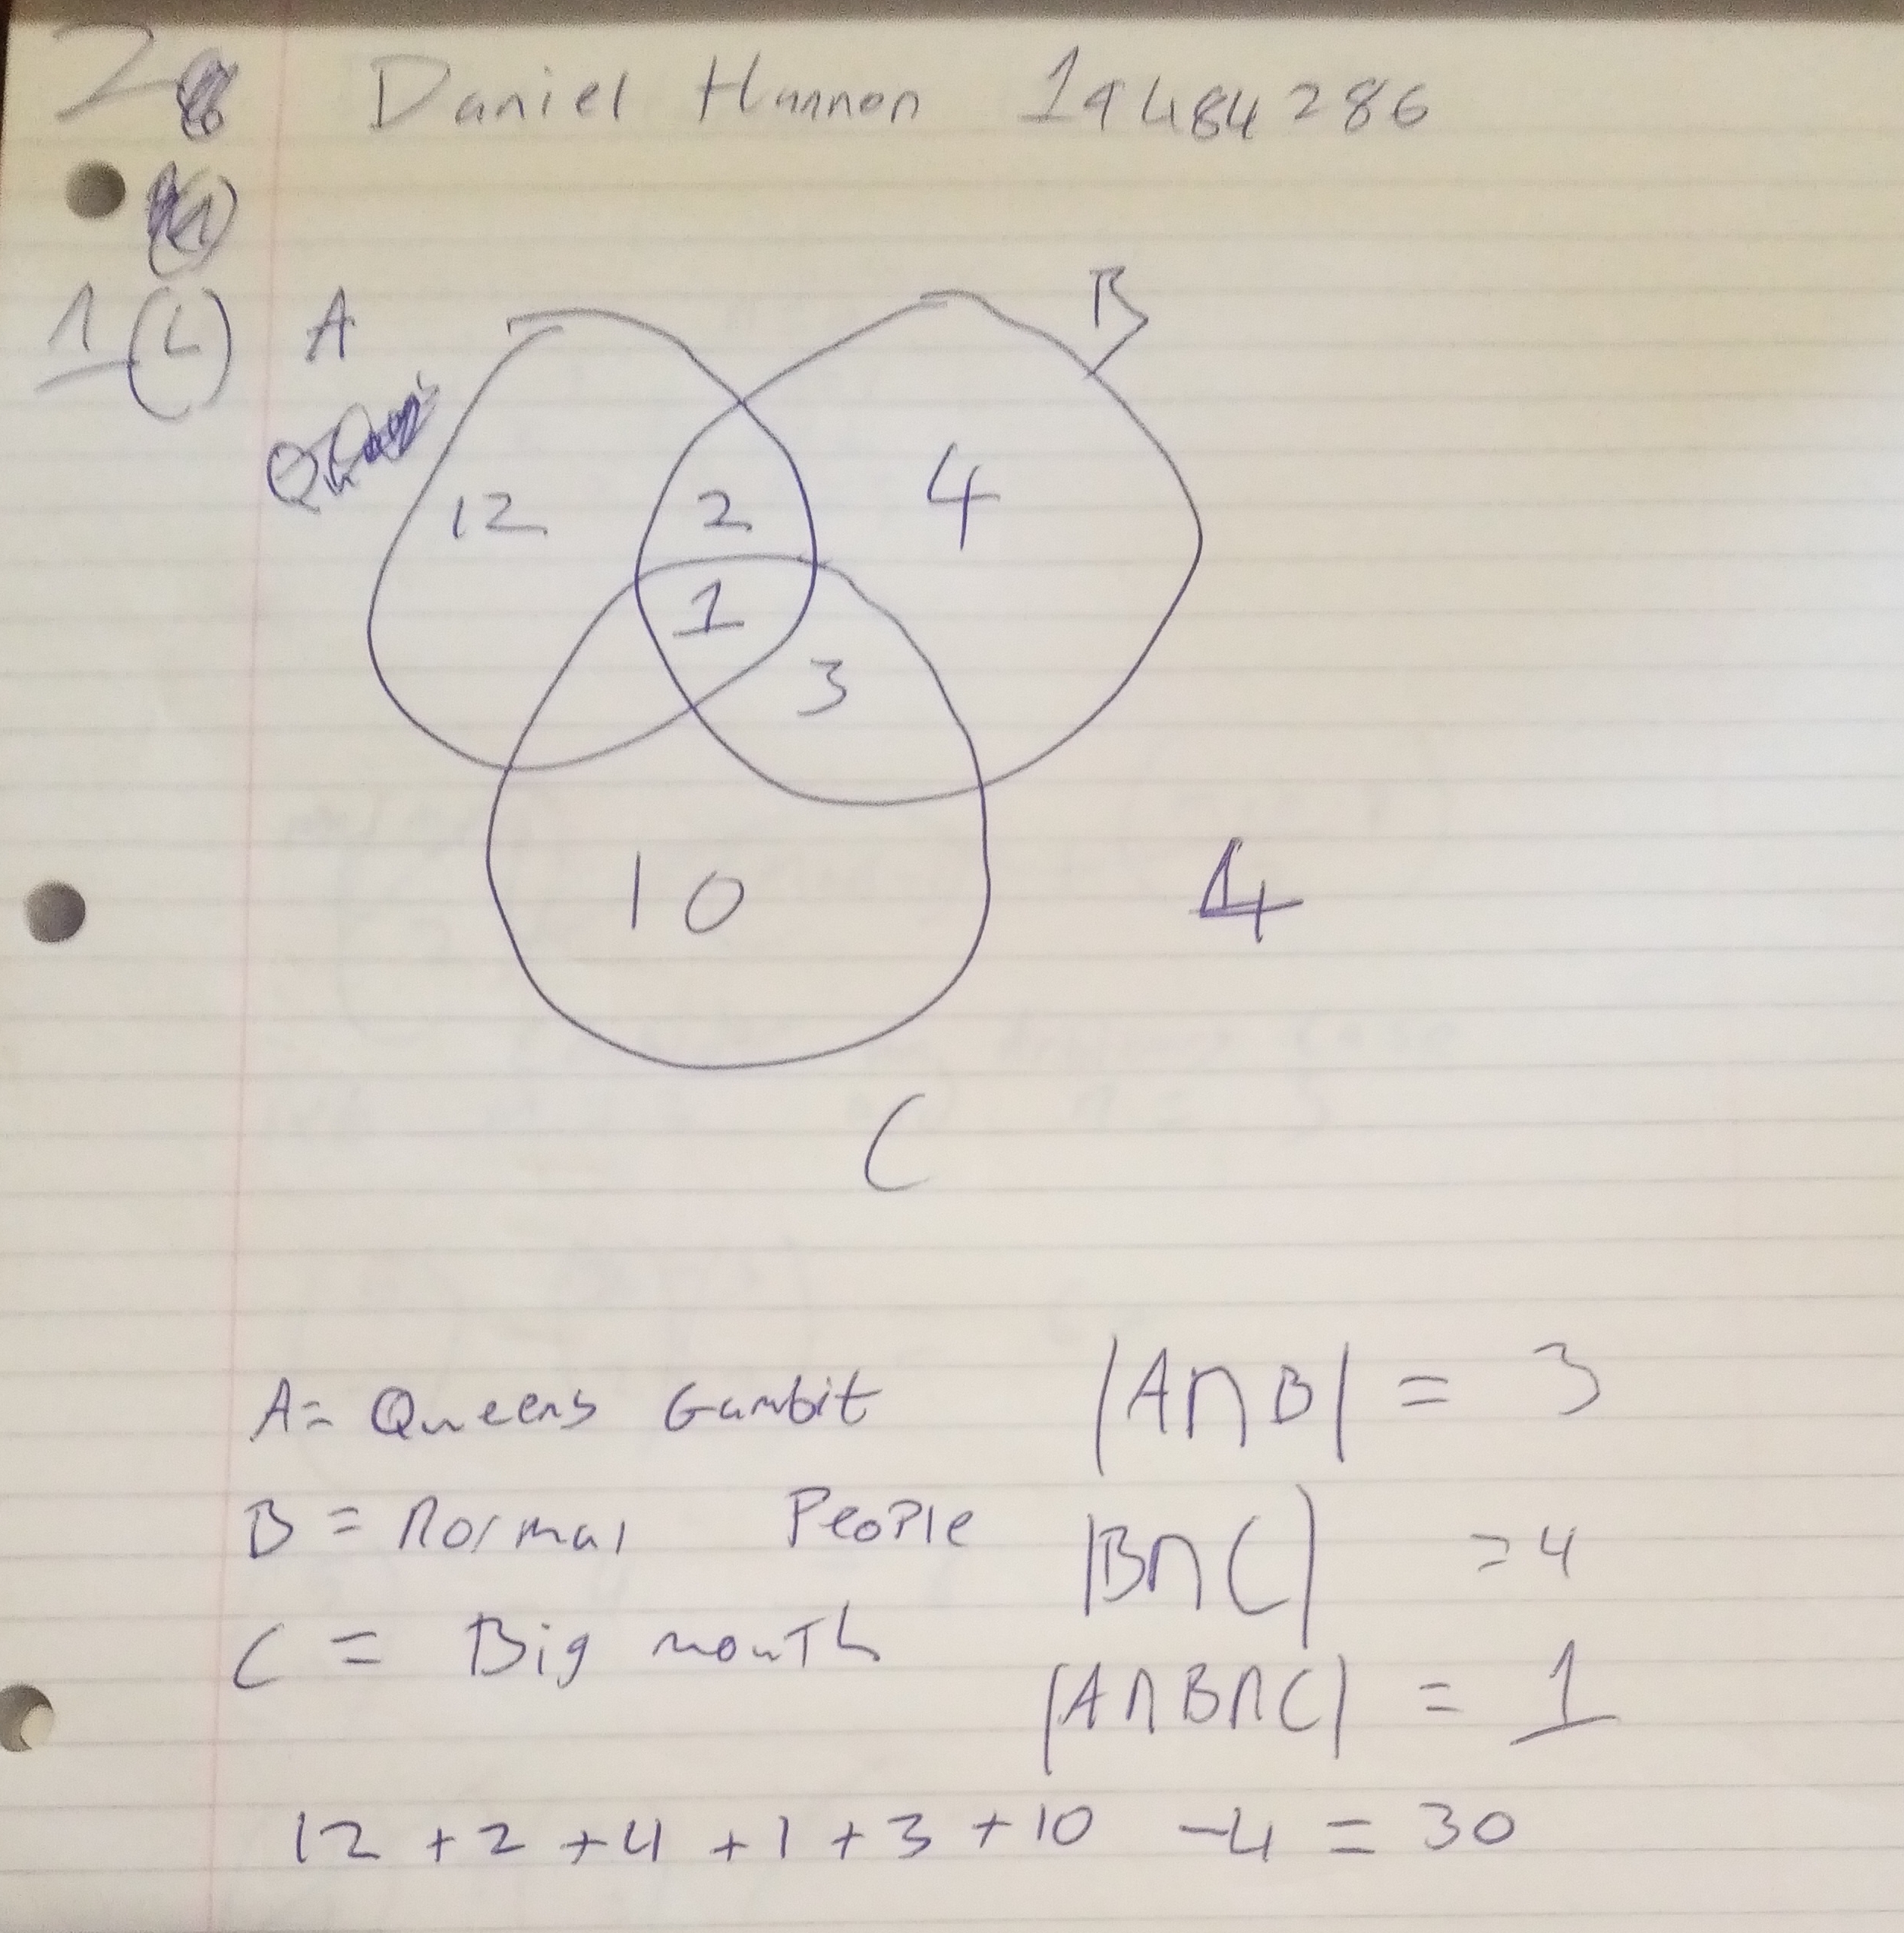 2
Daniel Hannon 19484286
1 (c) A
B
12 2 4
1
3
10
4
C
A= Queens Gambit |A∩B| = 3
B = Normal People |B∩C| =4
C = Big mouth
|A∩B∩C| = 1
12 +2 +4 +1 +3 +10 -4 = 30